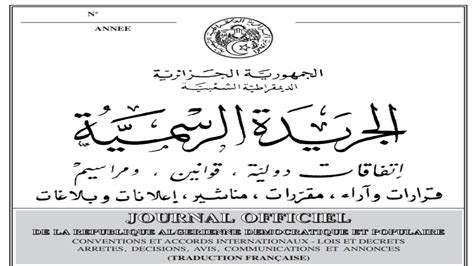 N°
ANNEE
الجمهورية الجزائرية
الديمقراطية الشعبية
الجريدة الرسمية
إتفاقات دولية ، قوانين ، ومراسيم
قرارات وآراء ، مقررات ، مناشير ، إعلانات وبلاغات
JOURNAL OFFICIEL
DE LA REPUBLIQUE ALGERIENNE DEMOCRATIQUE ET POPULAIRE
CONVENTIONS ET ACCORDS INTERNATIONAUX - LOIS ET DECRETS
ARRETES, DECISIONS, AVIS, COMMUNICATIONS ET ANNONCES
(TRADUCTION FRANÇAISE)